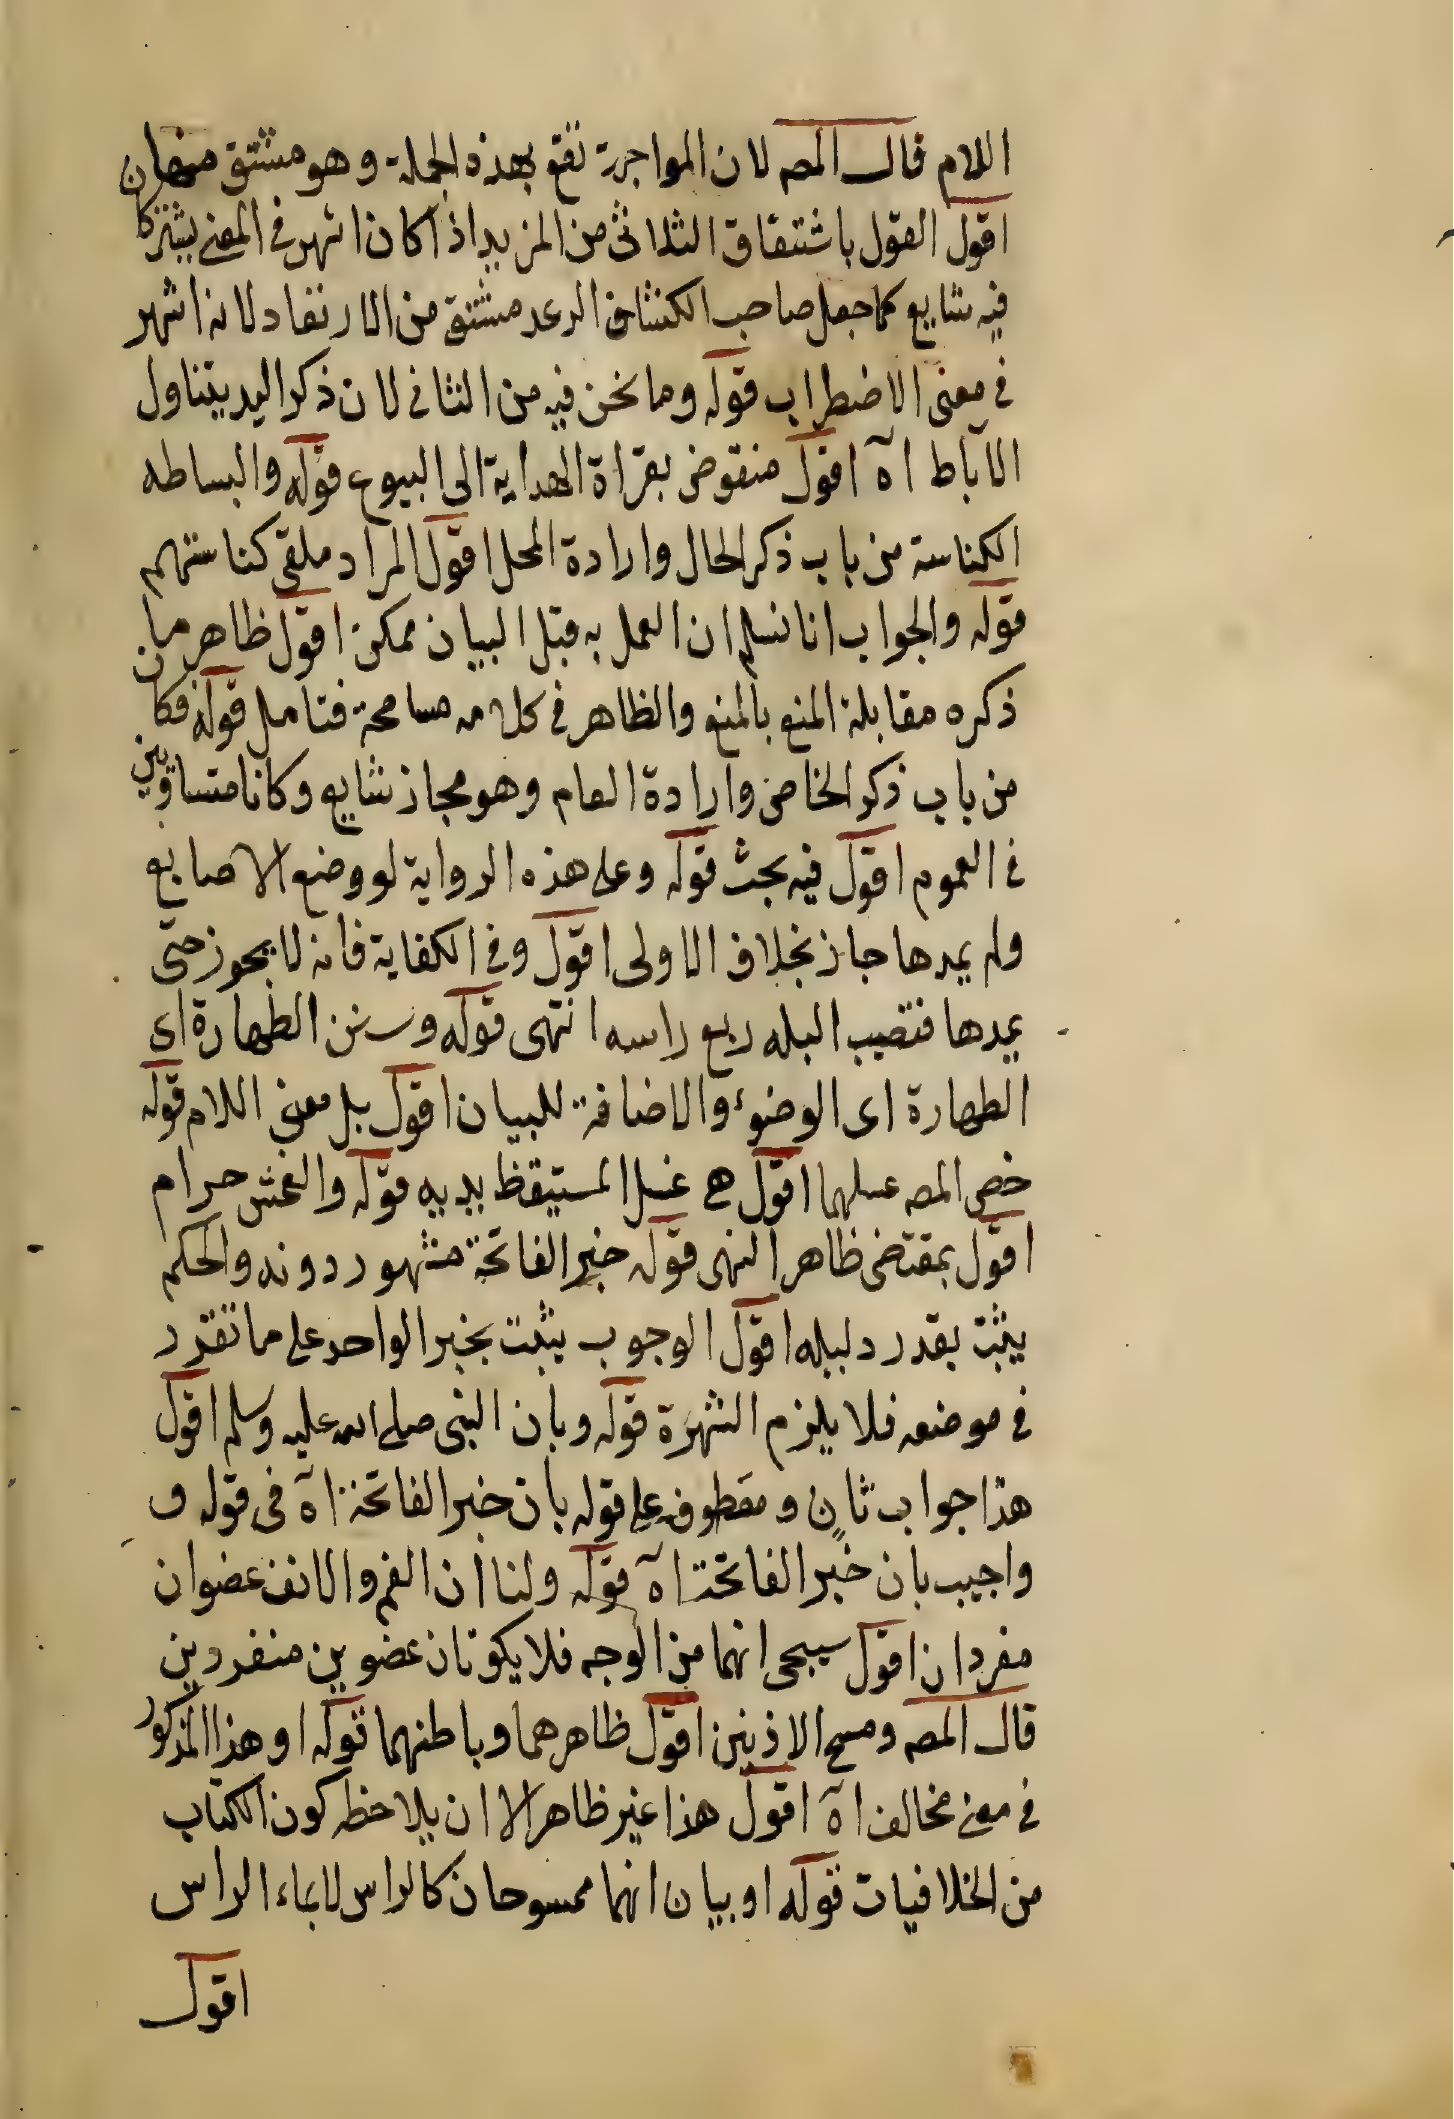 اللام قال المصـ لان المواجرة تقع بهذه الجملة وهو مشتق منها
اقول القول باشتقاق الثلاثى من المزيد اذا كان اشهر فى المعنى يشتركان
فيه شايع كما جعل صاحب الكشاف الرعد مشتق من الارتعاد لانه اشهر
فى معنى الاضطراب قوله وما نحن فيه من الثانى لان ذكر اليد يتناول
الآباط اه اقول منقوض بقراة الهداية الى البيوع قوله والبساطه
الكناسة من باب ذكر الحال وارادة المحل اقول المراد ملقى كناستهم
قوله والجواب انا نسلم ان العمل به قبل البيان ممكن اقول ظاهر ما
ذكره مقابلة المنع بالمنع والظاهر فى كلامه مسامحة فتامل قوله فكان
من باب ذكر الخاص وارادة العام وهو مجاز شايع وكانا متساويين
فى العموم اقول فيه بحث قوله وعلى هذه الرواية لو وضع الاصابع
ولم يمدها جاز بخلاف الاولى اقول وفى الكفاية فانه لا يجوز حتى
يمدها فتصيب البله ربع راسه انتهى قوله وسنن الطهارة اى
الطهارة اى الوضوء والاضافة للبيان اقول بل معنى اللام قوله
خص المصـ غسلهما اقول هى غسل المستيقظ يديه قوله والغمس حرام
اقول بمقتضى ظاهر النهى قوله خبر الفاتحة مشهور دونه والحكم
يثبت بقدر دليله اقول الوجوب يثبت بخبر الواحد على ما تقرر
فى موضعه فلا يلزم الشهرة قوله وبان النبى صلى الله عليه وسلم اقول
هذا جواب ثان ومعطوف على قوله بان خبر الفاتحة اه فى قوله و
واجيب بان خبر الفاتحة اه قوله ولنا ان الفم والانف عضوان
مفردان اقول سيجى انهما من الوجه فلا يكونان عضوين منفردين
قال المصـ ومسح الاذنين اقول ظاهرهما وباطنهما قوله او هذا المذكور
فى معنى مخالف اه اقول هذا غير ظاهر الا ان يلاحظ كون الكتاب
من الخلافيات قوله او بيان انهما ممسوحان كالراس لا بماء الراس
اقول